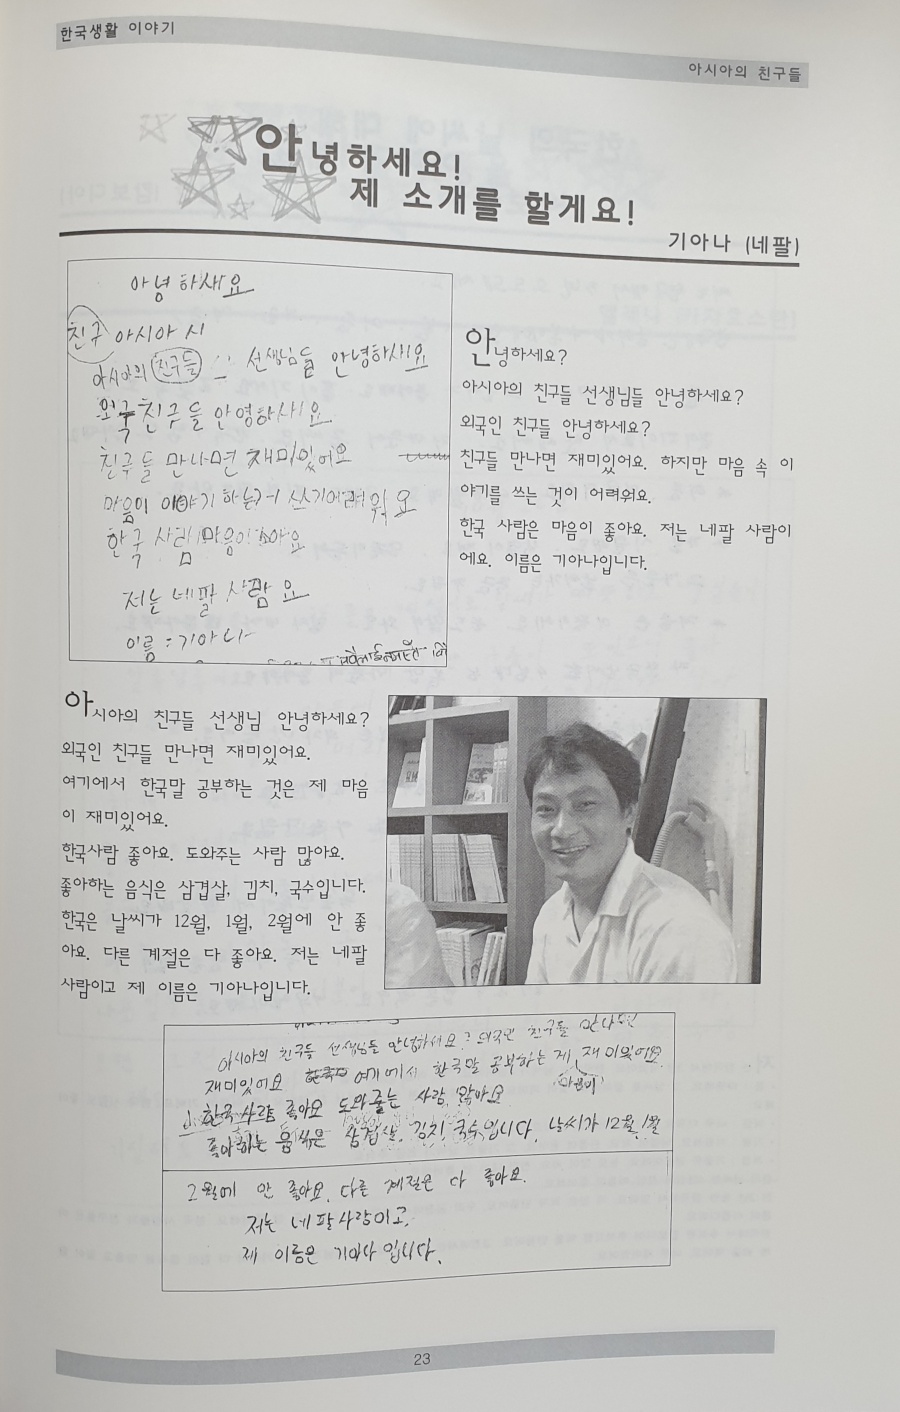 한국생활 이야기
아시아의 친구들
안녕하세요!
제 소개를 할게요!
기아나 (네팔)
안녕하새요
친구 아시아 시
아시아의 친구들 선생님들 안녕하세요
외국 친구들 안영하세요
친구들 만나면 재미있어요
마음이 이야기 하는거 쓰기어려워요
한국 사람 마음이 좋아요
저는 네팔 사람 요
이름 : 기아나
안녕하세요?
아시아의 친구들 선생님들 안녕하세요?
외국인 친구들 안녕하세요?
친구들 만나면 재미있어요. 하지만 마음 속 이
야기를 쓰는 것이 어려워요.
한국 사람은 마음이 좋아요. 저는 네팔 사람이
에요. 이름은 기아나입니다.
아시아의 친구들 선생님 안녕하세요?
외국인 친구들 만나면 재미있어요.
여기에서 한국말 공부하는 것은 제 마음
이 재미있어요.
한국사람 좋아요. 도와주는 사람 많아요.
좋아하는 음식은 삼겹살, 김치, 국수입니다.
한국은 날씨가 12월, 1월, 2월에 안 좋
아요. 다른 계절은 다 좋아요. 저는 네팔
사람이고 제 이름은 기아나입니다.
아시아의 친구들 선생님들 안녕하세요? 외국인 친구들 만나면
재미있어요 여기에서 한국말 공부하는 게 재미있어요
마음이
한국사람 좋아요 도와줄는 사람 많아요
좋아하는 음식은 삼겹살, 김치, 국수입니다. 날씨가 12월, 1월
2월에 안 좋아요. 다른 계절은 다 좋아요.
저는 네팔사람이고,
제 이름은 기아나입니다.
23